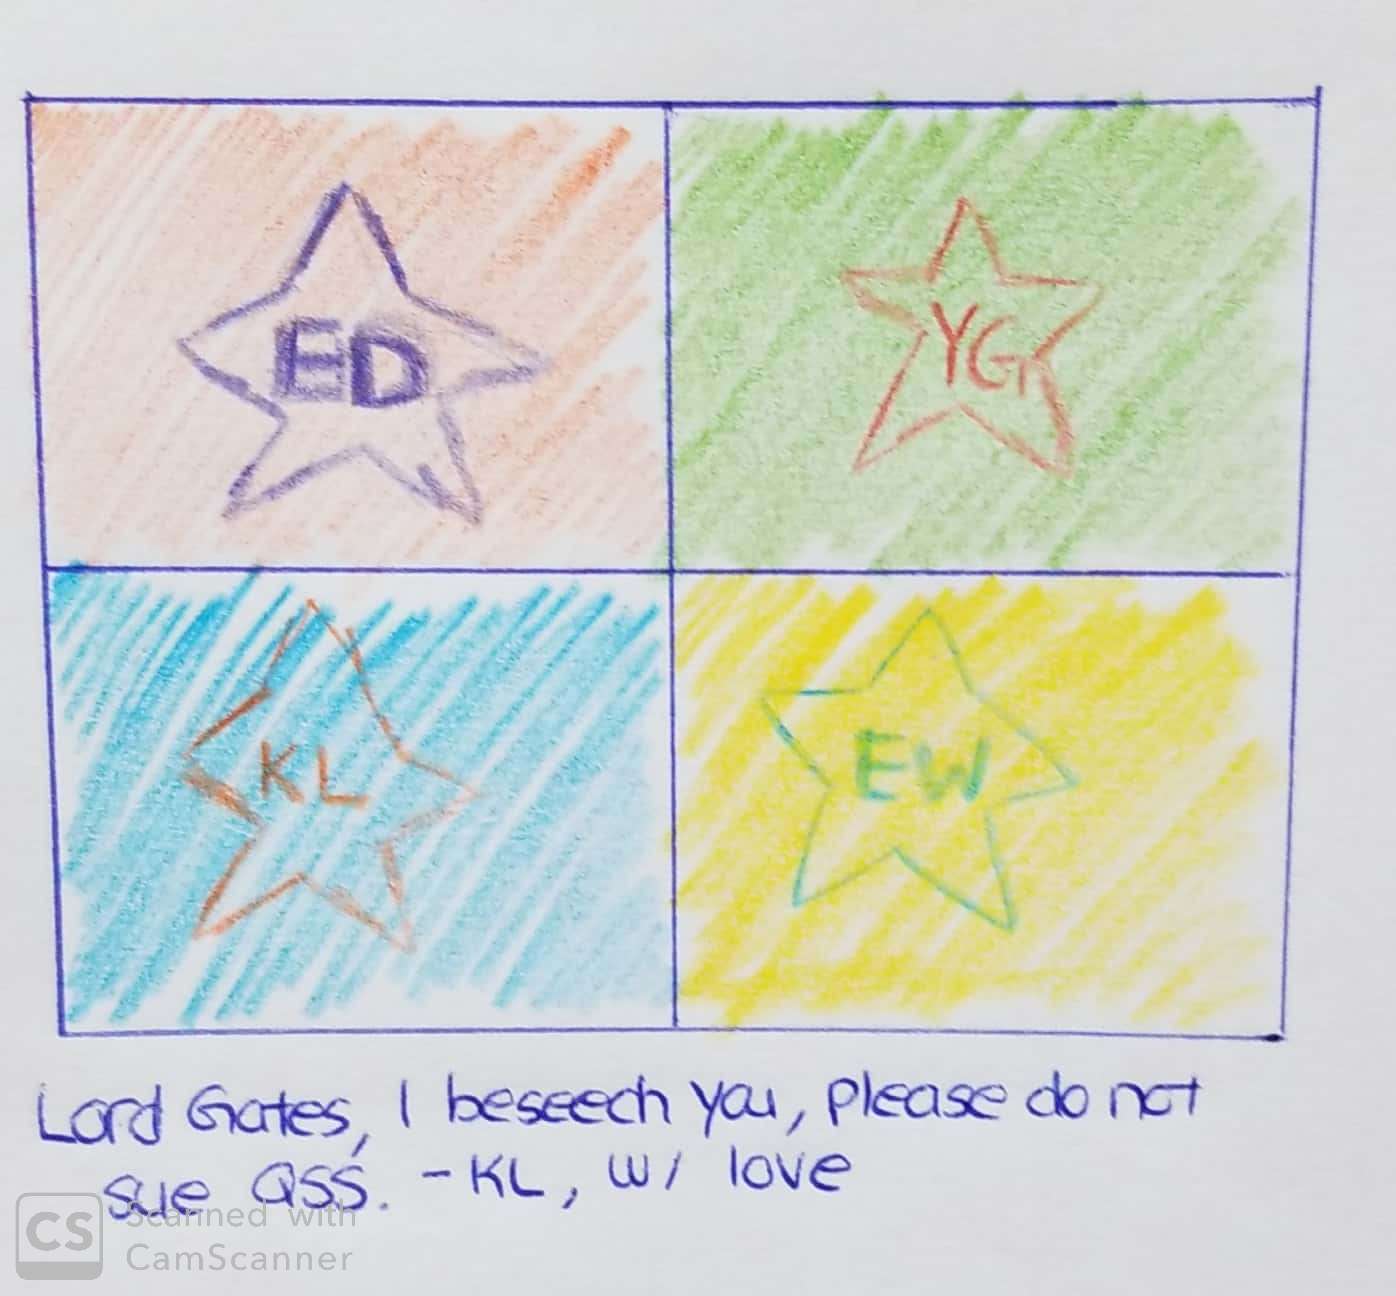 ED
YG
KL
EW
Lord Gates, I beseech you, please do not
sue QSS. - KL, w/ love
CS
Scanned with
CamScanner